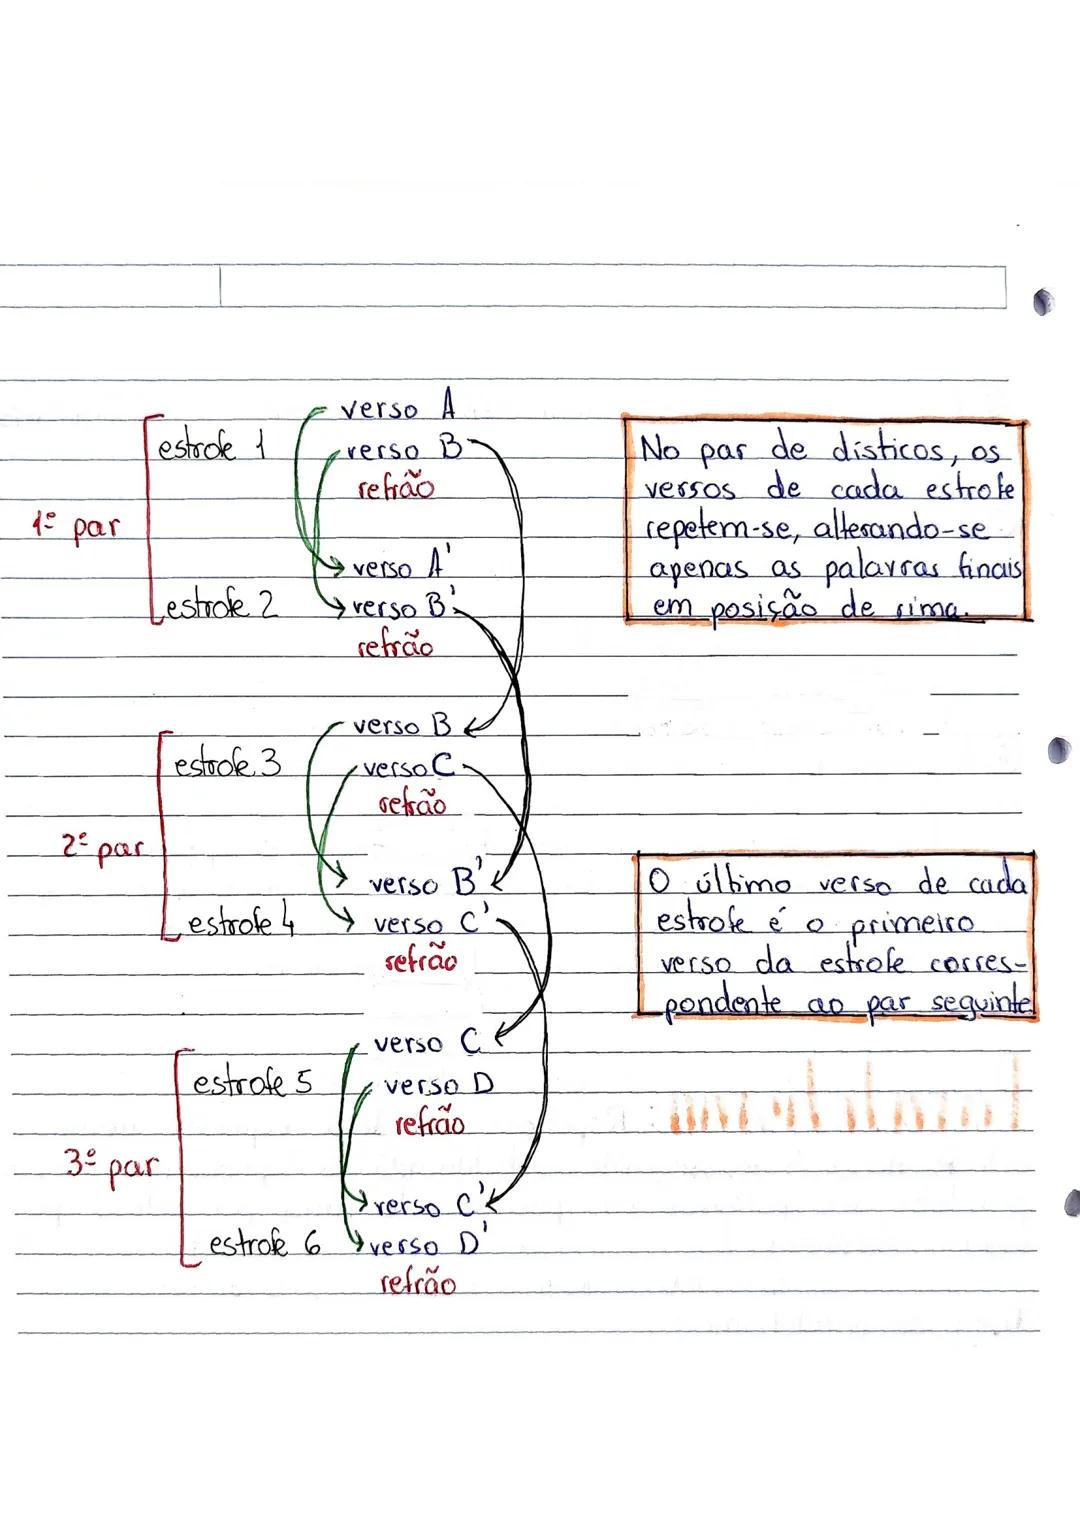 verso A
estrofe 1 verso B
refrão
1º par
verso A'
estrofe 2 verso B'
refrão
No par de dísticos, os
versos de cada estrofe
repetem-se, alterando-se
apenas as palavras finais
em posição de rima.
verso B
estrofe 3 verso C
refrão
2º par
verso B'
estrofe 4 verso C'
refrão
O último verso de cada
estrofe é o primeiro
verso da estrofe corres-
pondente ao par seguinte.
verso C
estrofe 5 verso D
refrão
3º par
verso C'
estrofe 6 verso D'
refrão